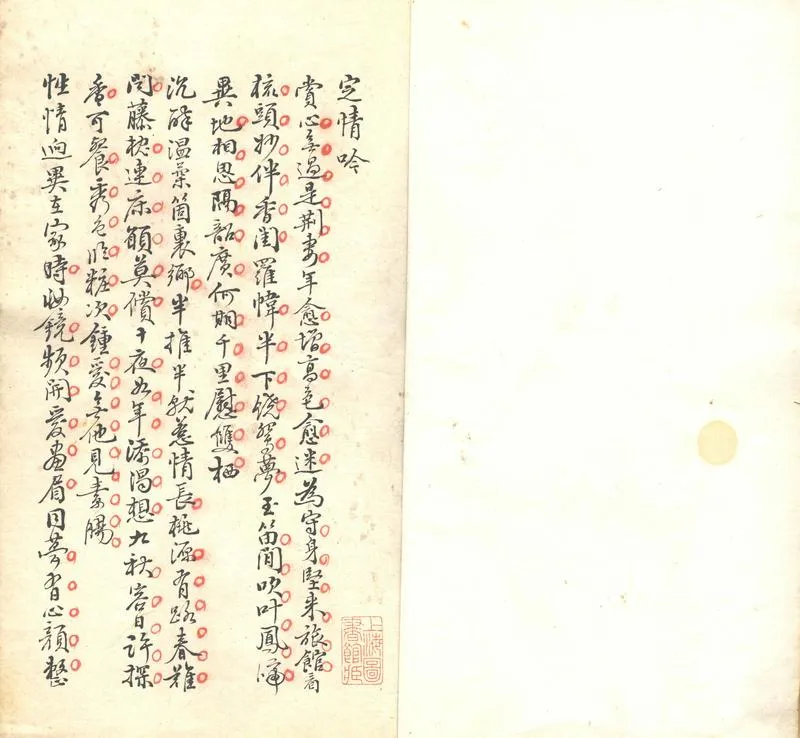 定情吟
賞心無過是荆妻年愈增高色愈迷為守身堅来旅館看
梳頭妙伴香閨羅幃半下饒鴛夢玉笛閒吹叶鳳啼
異地相思隔韶廣何期千里慰雙栖
沉醉温柔箇裏鄉半推半就惹情長桃源有路春難
問藤枕連床願莫償十夜如年添渴想九秋容日許探
香可餐秀色粧次鍾愛無他見素腸
性情迥異在家時妝鏡頻開愛畫眉同夢有心顏整
上海圖
書館藏